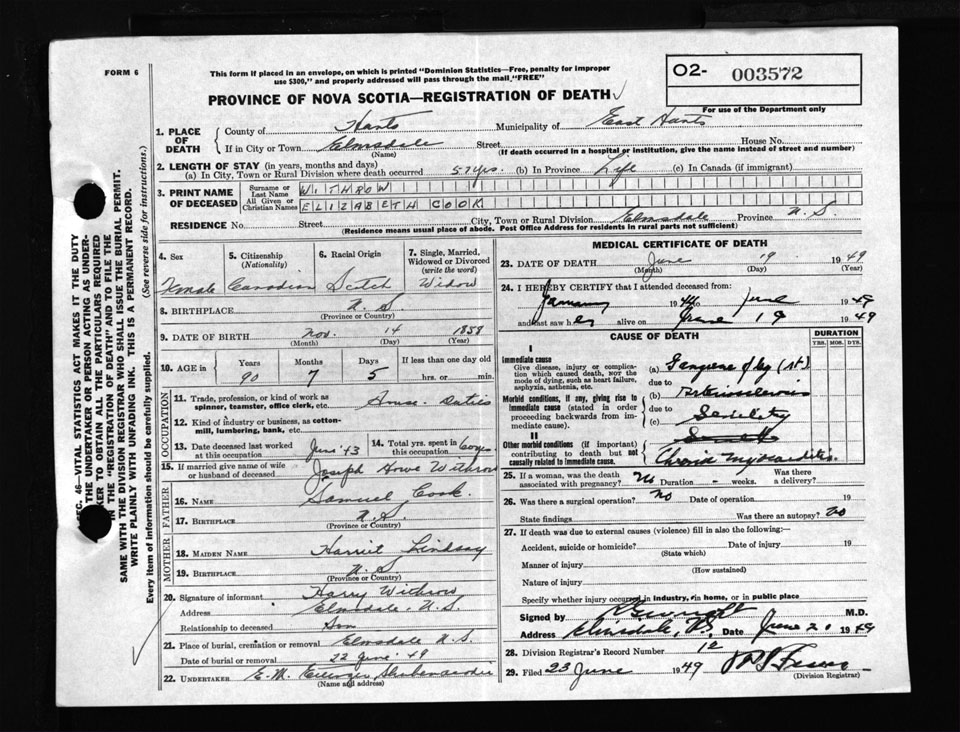 FORM 6
This form if placed in an envelope, on which is printed "Dominion Statistics—Free, penalty for improper
use $300," and properly addressed will pass through the mail "FREE"
O2- 003572
For use of the Department only
PROVINCE OF NOVA SCOTIA—REGISTRATION OF DEATH
1. PLACE OF DEATH
County of Hants Municipality of East Hants
If in City or Town Elmsdale Street House No.
(Name) (If death occurred in a hospital or institution, give the name instead of street and number)
2. LENGTH OF STAY (in years, months and days)
(a) In City, Town or Rural Division where death occurred 57 yrs. (b) In Province Life (c) In Canada (if immigrant)
3. PRINT NAME OF DECEASED
Surname or Last Name WITHROW
All Given or Christian Names ELIZABETH COOK
RESIDENCE No. Street City, Town or Rural Division Elmsdale Province N.S.
(Residence means usual place of abode. Post Office Address for residents in rural parts not sufficient)
4. Sex Female
5. Citizenship (Nationality) Canadian
6. Racial Origin Scotch
7. Single, Married, Widowed or Divorced (write the word) Widow
8. BIRTHPLACE N.S
(Province or Country)
9. DATE OF BIRTH Nov. 14 1858
(Month) (Day) (Year)
10. AGE in Years Months Days If less than one day old
90 7 5 hrs. or min.
OCCUPATION
11. Trade, profession, or kind of work as
spinner, teamster, office clerk, etc. House Duties
12. Kind of industry or business, as cotton-
mill, lumbering, bank, etc.
13. Date deceased last worked at this occupation '43
14. Total yrs. spent in this occupation 60 yrs
15. If married give name of wife or husband of deceased Joseph Howe Withrow
FATHER
16. NAME Samuel Cook.
17. BIRTHPLACE N.S.
(Province or Country)
MOTHER
18. MAIDEN NAME Harriet Lindsay
19. BIRTHPLACE N.S
(Province or Country)
20. Signature of informant Harry Withrow
Address Elmsdale, N.S.
Relationship to deceased Son
21. Place of burial, cremation or removal Elmsdale N.S.
Date of burial or removal 22 June '49
22. UNDERTAKER E.M. Shubenacadie
(Name and address)
MEDICAL CERTIFICATE OF DEATH
23. DATE OF DEATH June 19 1949
(Month) (Day) (Year)
24. I HEREBY CERTIFY that I attended deceased from
January 19 to June 1949
and last saw her alive on June 19 1949
CAUSE OF DEATH
DURATION
YRS. MOS. DYS.
I
Immediate cause
Give disease, injury or complication which caused death, NOT the mode of dying, such as heart failure, asphyxia, asthenia, etc.
(a) Gangrene of leg (rt.)
due to
Morbid conditions, if any, giving rise to immediate cause (stated in order proceeding backwards from immediate cause).
(b) Arteriosclerosis
due to
(c) Senility
II
Other morbid conditions (if important) contributing to death but not causally related to immediate cause.
Chronic Myocarditis
25. If a woman, was the death associated with pregnancy? No Duration - weeks. Was there a delivery?
26. Was there a surgical operation? No Date of operation 19
State findings Was there an autopsy? No
27. If death was due to external causes (violence) fill in also the following:—
Accident, suicide or homicide? Date of injury 19
(State which)
Manner of injury
(How sustained)
Nature of injury
Specify whether injury occurred in industry, in home, or in public place
Signed by M.D.
Address Elmsdale, N.S. Date June 20 1949
28. Division Registrar's Record Number 12
29. Filed 23 June 1949
(Division Registrar)
SEC. 46—VITAL STATISTICS ACT MAKES IT THE DUTY
THE UNDERTAKER OR PERSON ACTING AS UNDER-
KER TO OBTAIN ALL THE PARTICULARS REQUIRED
IN THE "REGISTRATION OF DEATH" AND TO FILE THE
SAME WITH THE DIVISION REGISTRAR WHO SHALL ISSUE THE BURIAL PERMIT.
WRITE PLAINLY WITH UNFADING INK. THIS IS A PERMANENT RECORD.
Every item of information should be carefully supplied. (See reverse side for instructions.)